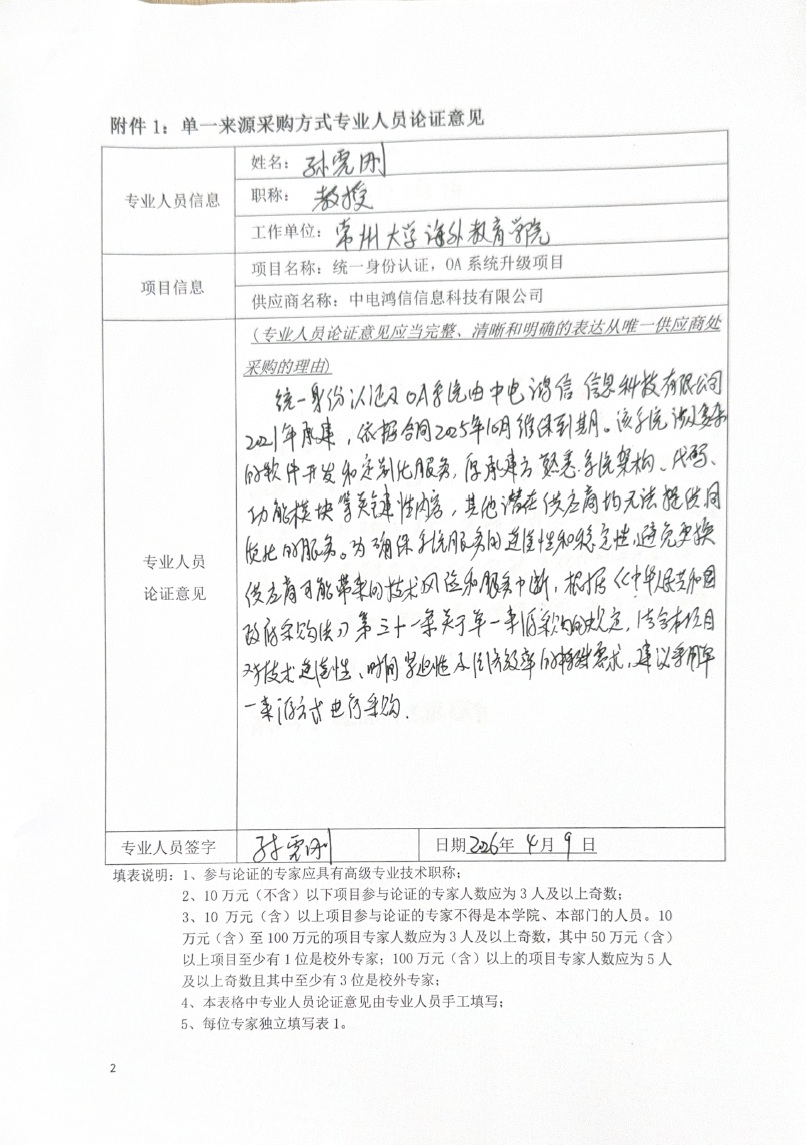 附件1：单一来源采购方式专业人员论证意见
专业人员信息
姓名：孙霓刚
职称：教授
工作单位：常州大学海外教育学院
项目信息
项目名称：统一身份认证，OA系统升级项目
供应商名称：中电鸿信信息科技有限公司
(专业人员论证意见应当完整、清晰和明确的表达从唯一供应商处
采购的理由)
专业人员
论证意见
统一身份认证及OA系统由中电鸿信信息科技有限公司
2021年承建，依据合同2025年10月维保到期。该系统涉及复杂
的软件开发和定制化服务，原承建方熟悉系统架构、代码、
功能模块等关键性内容，其他潜在供应商均无法提供同
质化的服务。为确保系统服务的连续性和稳定性，避免更换
供应商可能带来的技术风险和服务中断，根据《中华人民共和国
政府采购法》第三十一条关于单一来源采购的规定，结合本项目
对技术连续性、时间紧迫性及经济效率的特殊要求，建议采用单
一来源方式进行采购.
专业人员签字
孙霓刚
日期2026年 4月 9 日
填表说明：1、参与论证的专家应具有高级专业技术职称；
2、10万元（不含）以下项目参与论证的专家人数应为3人及以上奇数；
3、10 万元（含）以上项目参与论证的专家不得是本学院、本部门的人员。10
万元（含）至100万元的项目专家人数应为3人及以上奇数，其中50万元（含）
以上项目至少有1位是校外专家；100万元（含）以上的项目专家人数应为5人
及以上奇数且其中至少有3位是校外专家；
4、本表格中专业人员论证意见由专业人员手工填写；
5、每位专家独立填写表1。
2